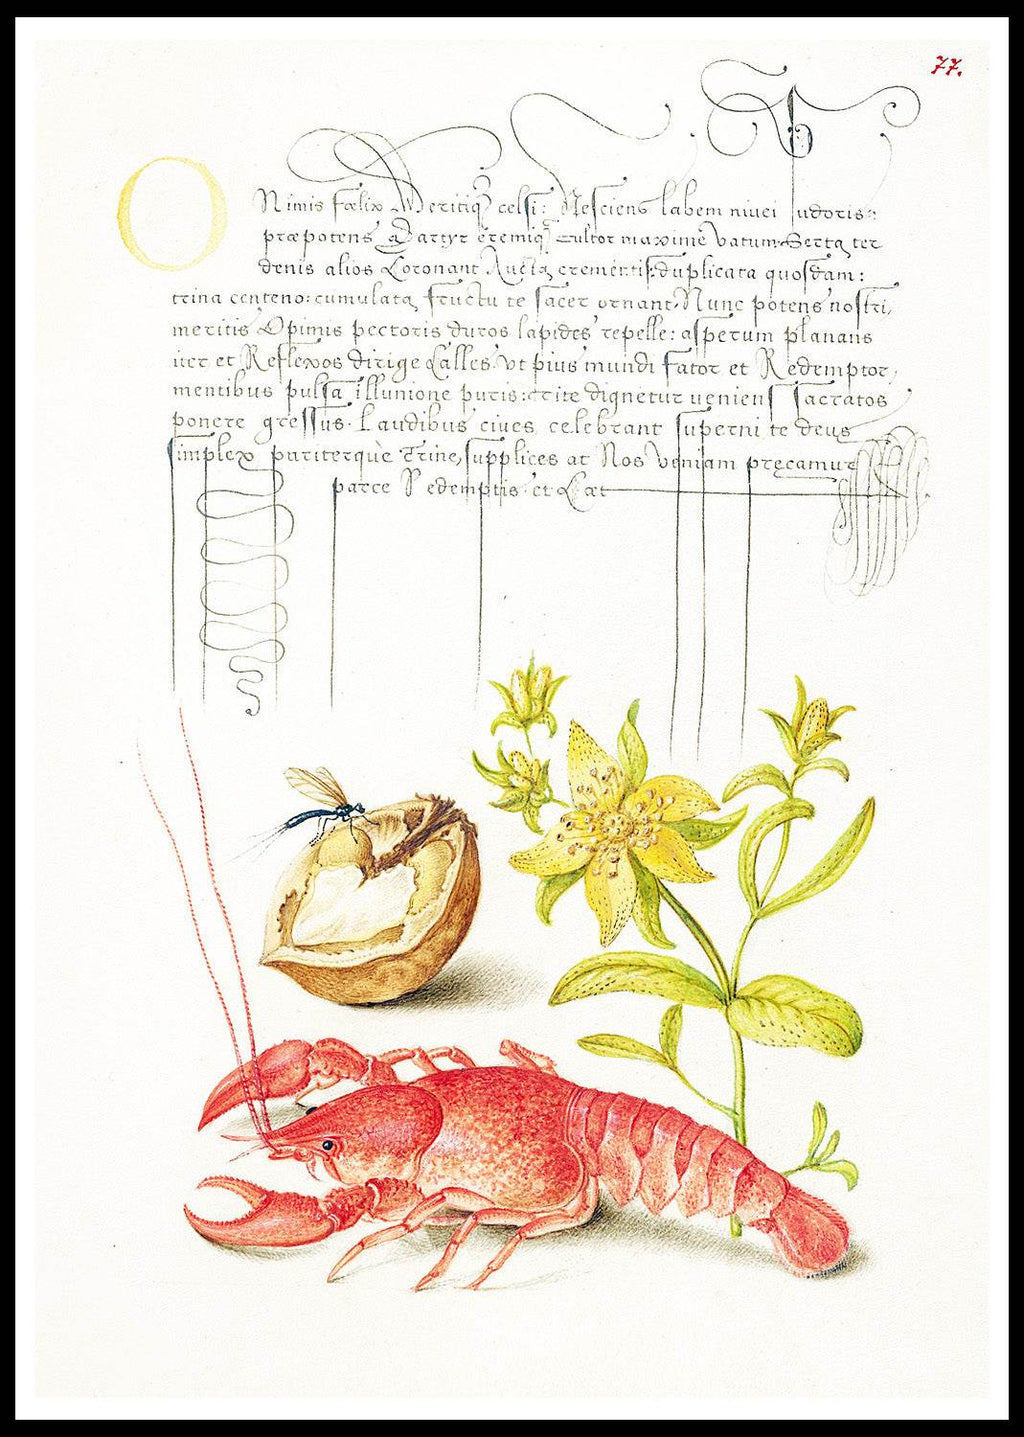 77.
O Nimis fœlix Meritiq; celsi: Nesciens labem nivei pudoris:
præpotens Martyr eremiq; Cultor maxime vatum. Serta ter
denis alios Coronant Aucta crementis: duplicata quosdam:
trina centeno: cumulata fructu te sacer ornant. Nunc potens nostri,
meritis Opimis pectoris duros lapides repelle: asperum planans
iter et Reflexos dirige Calles. Ut pius mundi sator et Redemptor,
mentibus pulsa illunione puris: rite dignetur veniens sacratos
ponere gressus. Laudibus cives celebrant superni te deus
simplex pariterquè Trine, supplices at Nos veniam precamur
parce Redemptis. et Cæt